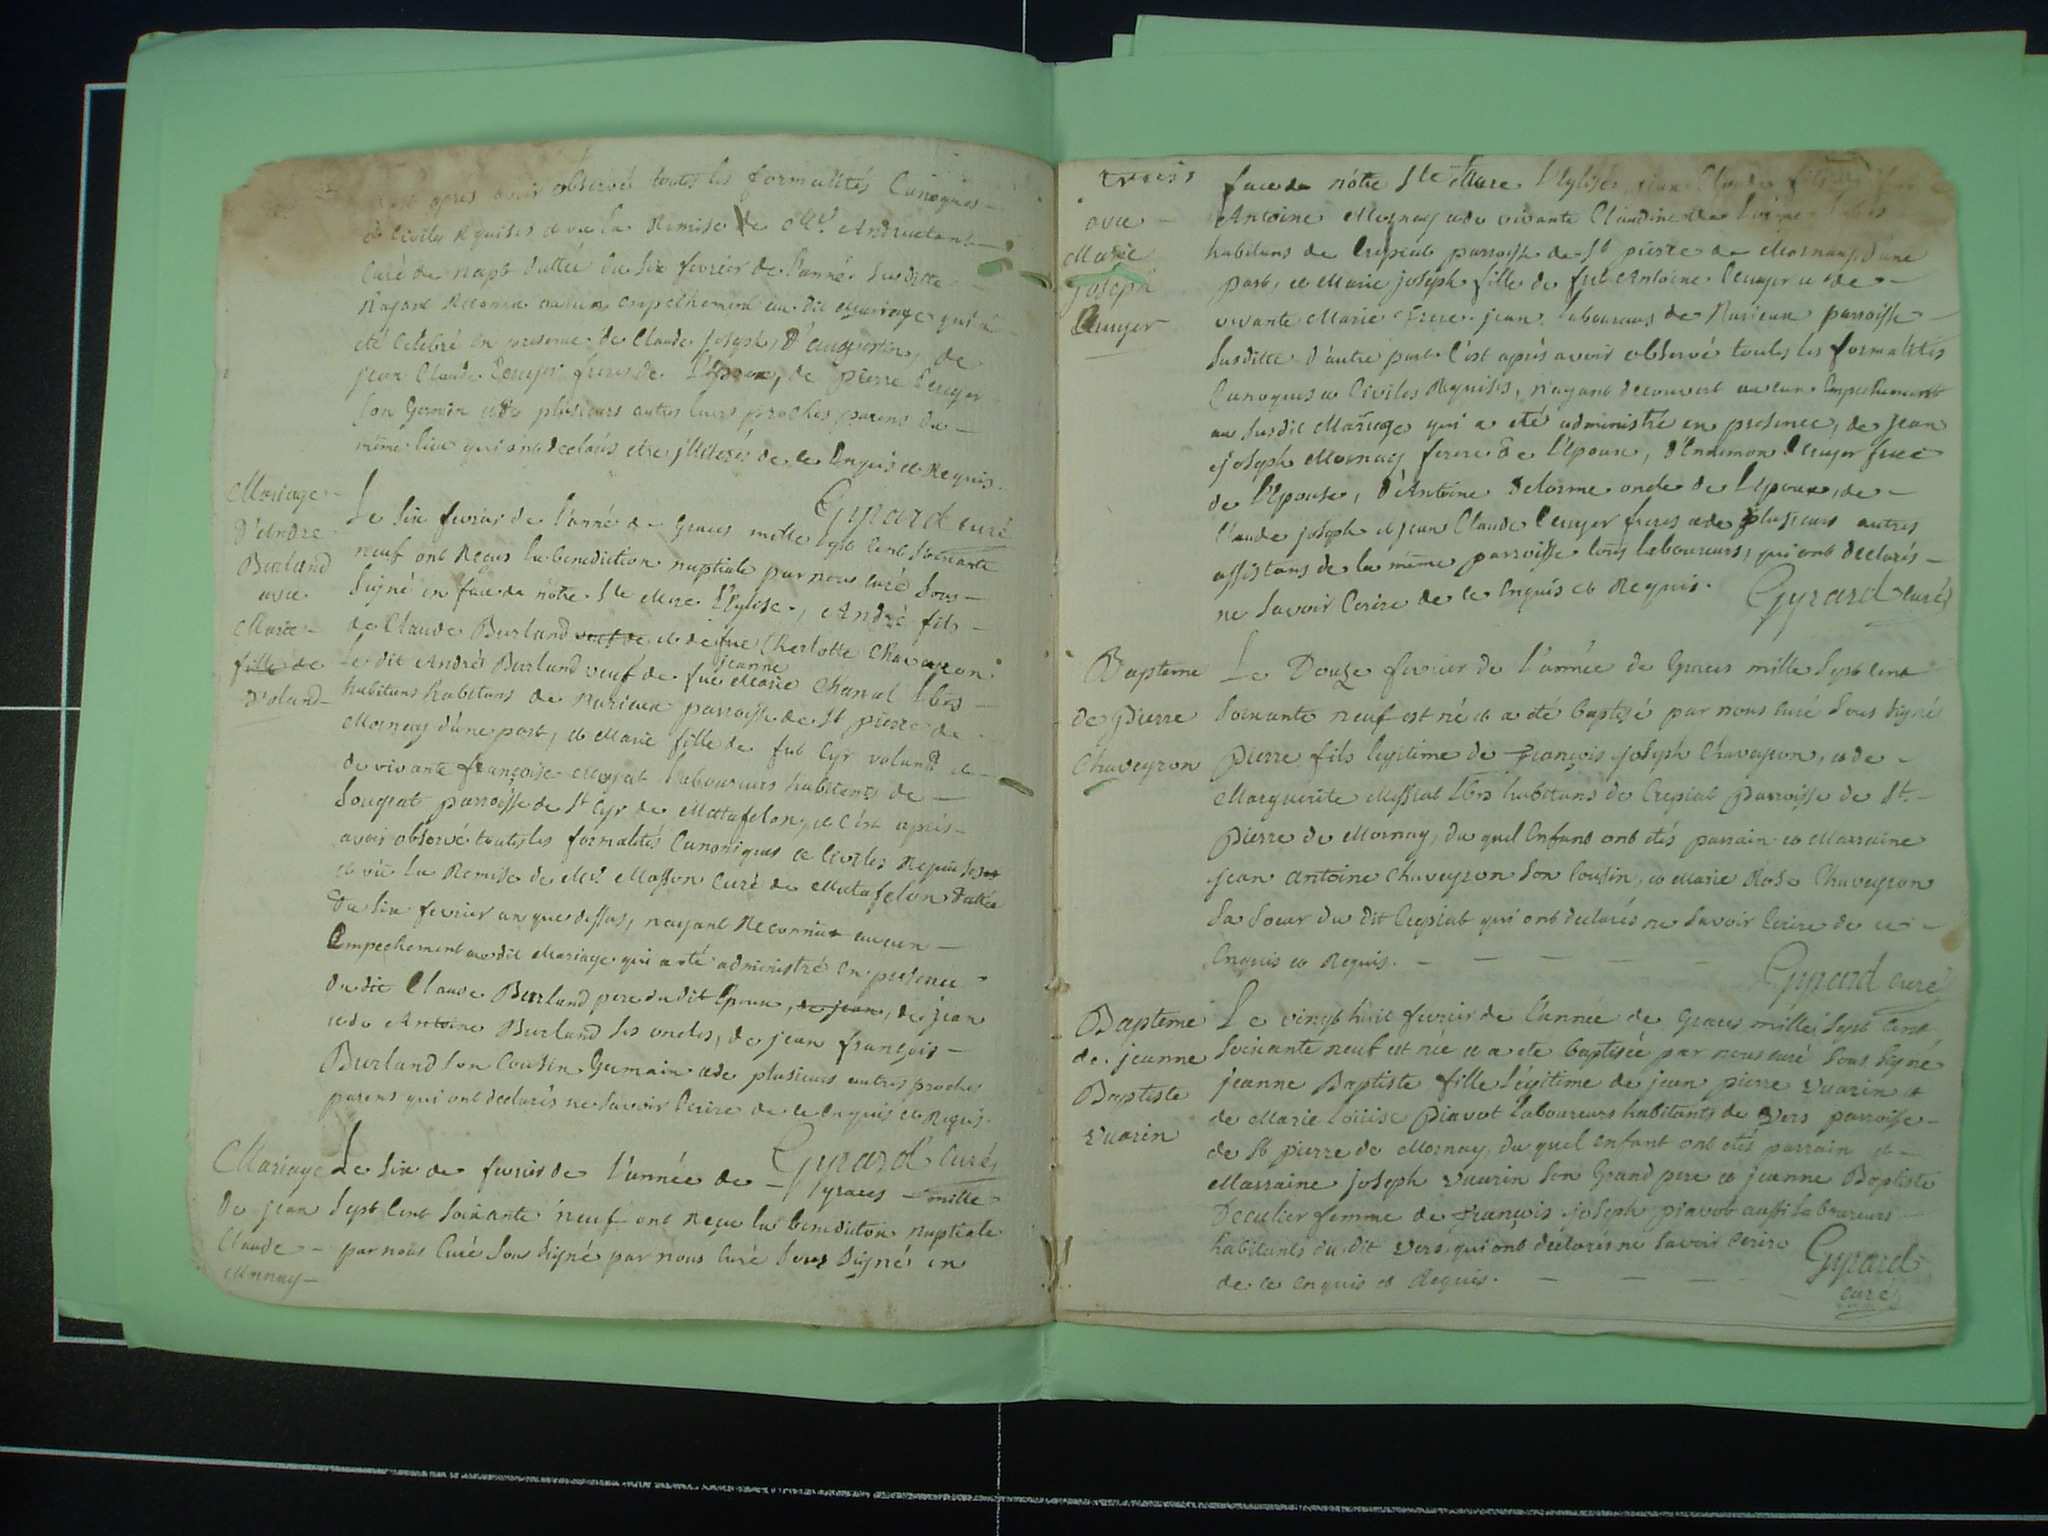 apres avoir observé toutes les formalités Canoniques
et Civiles Requises et vu la Remise de Mr. Andruetan
Curé de napt dattée du six fevrier de l'année susditte
n'ayant Reconnu aucun empechement au dit Mariage qui a
été Celebré en presence de Claude Joseph, d'augustin, de
jean Claude Lcuyer freres de l'Epoux, de pierre Lcuyer
son Germain et de plusieurs autres leurs proches parens du
même lieu qui ont declarés etre jlliterés de ce Enquis et Requis.
Gyrard curé
Mariage
D'Andre
Burland
avec
Marie
fille de
Voland
Le six fevrier de l'anné de Graces mille sept cent soixante
neuf ont Recus la benediction nuptiale par nous curé sous
signé en face de nôtre Ste Mere l'Eglise, André fils
de Claude Burland veuf de et de fue Charlotte Chaveyron
Le dit André Burland veuf de fue Marie jeanne Chanal lbrs
habitans habitans de Nurieux parroisse de St pierre de
Mornay d'une part, et Marie fille de fut Cyr voland et
de vivante françoise Moyat laboureurs habitants de
Sougeat parroisse de St Cyr de Mattafelon, et c'est après
avoir observé toutes les formalités Canoniques et Civiles Requises
et vû la Remise de Mr. Masson Curé de Matafelon dattée
du six fevrier an que dessus, n'ayant Reconnut aucun
Empechement au dit Mariage qui a eté administré en presence
du dit Claude Burland pere du dit Epoux, de jean, de jean
et de Antoine Burland ses oncles, de jean françois
Burland son Cousin Germain et de plusieurs autres proches
parens qui ont declarés ne savoir Ecrire de ce Enquis et Requis.
Gyrard Curé
Mariage
De jean
Claude
Mornay
Le six de fevrier de l'année de Graces mille
sept Cent soixante neuf ont Reçu la benediction nuptiale
par nous Curé sous signé par nous Curé sous signé en
avec
Marie
joseph
Lcuyer
face de nôtre Ste Mere l'Eglise, jean Claude fils
Antoine Mornay et de vivante Claudine
habitans de Crepiat parroisse de St pierre de Mornay d'une
part, et Marie joseph fille de fut Antoine Lcuyer et de
vivante Marie frere jean laboureurs de Nurieux parroisse
susditte d'autre part c'est après avoir observé toutes les formalités
Canoniques et Civiles Requises, n'ayant decouvert aucun Empechement
au susdit Mariage qui a eté administré en presence, de jean
joseph Mornay frere de l'Epoux, d'Enemon Lcuyer frere
de l'Epouse, d'Antoine Delorme oncle de l'Epoux, de
Claude joseph et jean Claude Lcuyer freres et de plusieurs autres
assistans de la même parroisse tous laboureurs, qui ont declarés
ne savoir Ecrire de ce Enquis et Requis. Gyrard curé
Bapteme
de pierre
Chaveyron
Le Douze fevrier de l'année de Graces mille sept cent
soixante neuf est né et a été baptisé par nous curé sous signé
pierre fils legitime de François joseph Chaveyron, et de
Marguerite Messiat lbrs habitans de Crepiat parroisse de St.
Pierre de Mornay, du quel Enfant ont étés parrain et Marraine
jean antoine Chaveyron son Cousin, et Marie Rose Chaveyron
sa soeur du dit Crepiat qui ont declarés ne savoir Ecrire de ce
Enquis et Requis.
Gyrard curé
Bapteme
de jeanne
Baptiste
vuarin
Le vingt huit fevrier de l'année de Graces mille sept Cent
soixante neuf est née et a ete baptisée par nous curé sous signé
jeanne Baptiste fille légitime de jean pierre vuarin et
de Marie loüise piavot laboureurs habitants de Vers parroisse
de St pierre de Mornay, du quel enfant ont etés parrain et
Marraine joseph vuarin son Grand pere et jeanne Baptiste
Decurier femme de François joseph piavot aussi laboureurs
habitants du dit Vers qui ont declarés ne savoir Ecrire
de ce Enquis et Requis.
Gyrard
curé